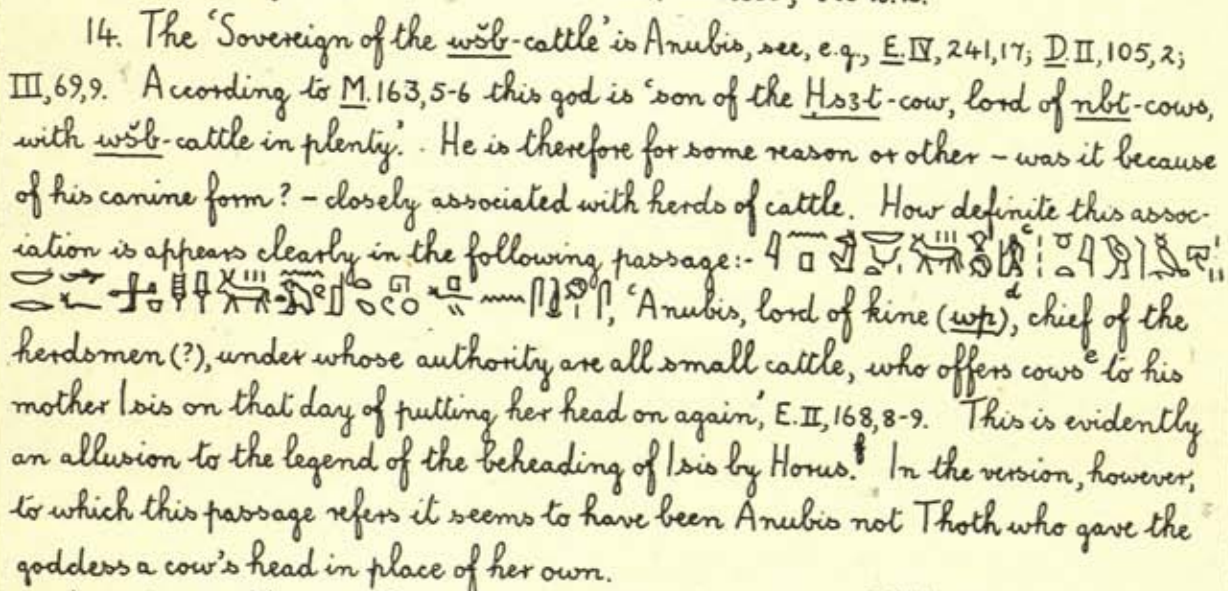 14. The ‘Sovereign of the wšb-cattle’ is Anubis, see, e.g., E.IV,241,17; D.II,105,2;
III,69,9. According to M.163,5-6 this god is ‘son of the Ḥsꜣt-cow, lord of nbt-cows,
with wšb-cattle in plenty’. He is therefore for some reason or other – was it because
of his canine form? – closely associated with herds of cattle. How definite this assoc-
iation is appears clearly in the following passage:-
‘Anubis, lord of kine (wp)ᵈ, chief of the
herdsmen (?), under whose authority are all small cattle, who offers cowsᵉ to his
mother Isis on that day of putting her head on again’, E.II,168,8-9. This is evidently
an allusion to the legend of the beheading of Isis by Horus.ᶠ In the version, however,
to which this passage refers it seems to have been Anubis not Thoth who gave the
goddess a cow's head in place of her own.